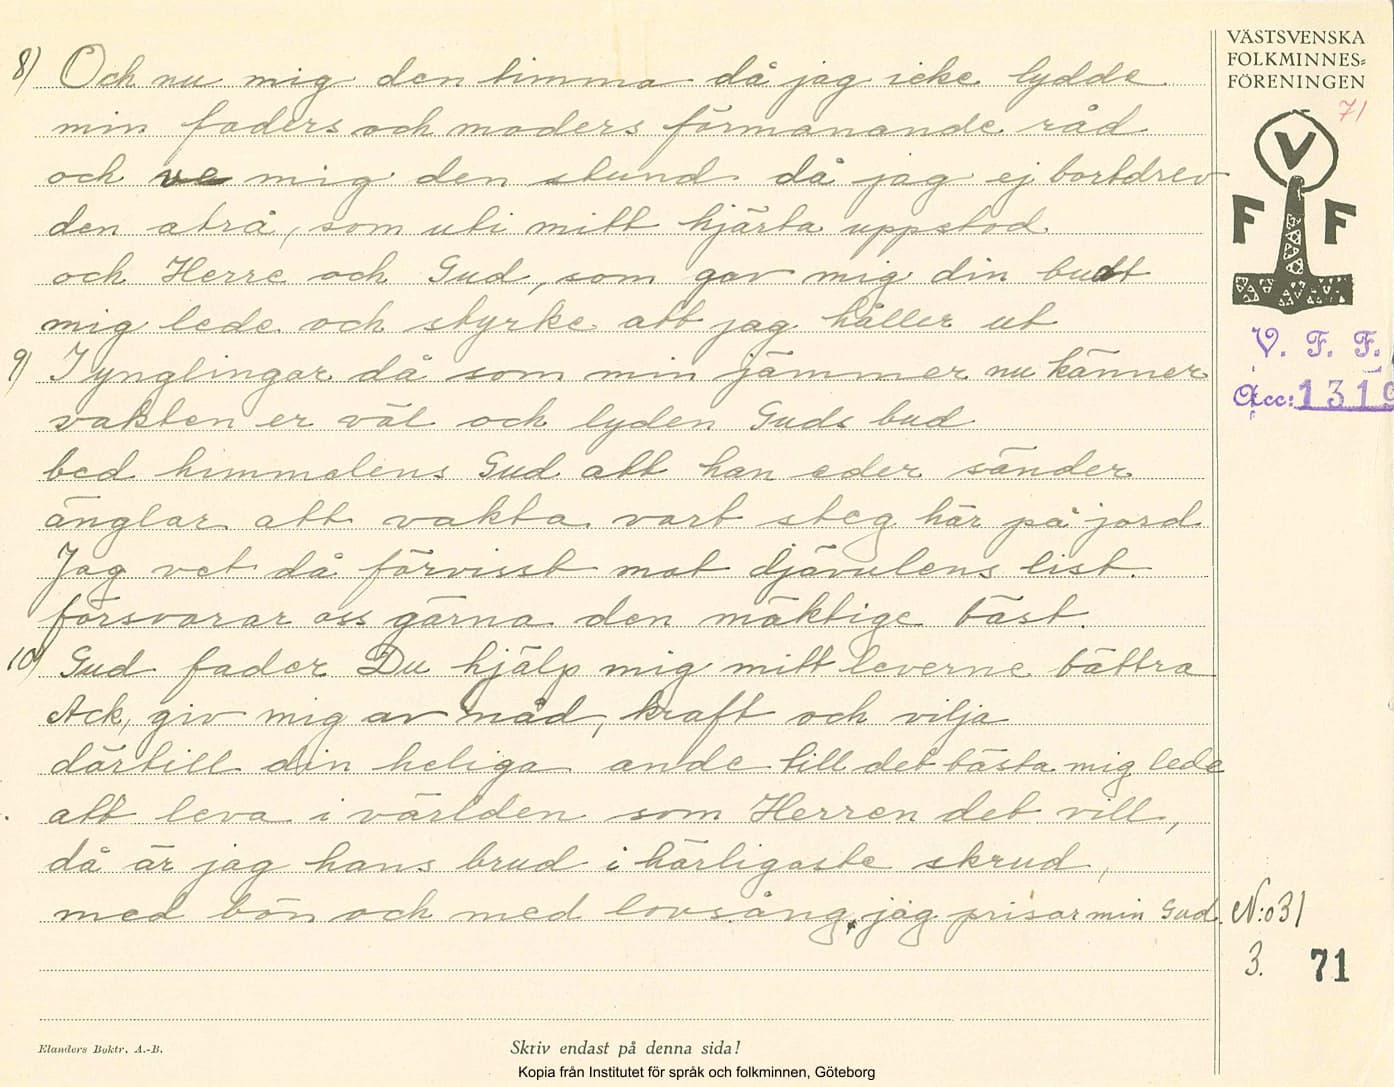 8) Och nu mig den timma då jag icke lydde
min faders och moders förmanande råd
och ve mig den stund då jag ej bortdrev
den atrå, som uti mitt hjärta uppstod
och Herre och Gud, som gav mig din budt
mig lede och styrke att jag håller ut
9) I ynglingar då som min jämmer nu känner
vakten er väl och lyden Guds bud
bed himmelens Gud att han eder sänder
änglar att vakta vart steg här på jord
Jag vet då förvisst mot djävulens list.
försvarar oss gärna den mäktige bäst.
10) Gud fader Du hjälp mig mitt leverne bättra
Ack, giv mig av nåd, kraft och vilja
därtill din heliga ande till det bästa mig lede
att leva i världen som Herren det vill,
då är jag hans brud i härligaste skrud,
med bön och med lovsång, jag prisar min Gud.
VÄSTSVENSKA
FOLKMINNES=
FÖRENINGEN
71
V
F F
V. F. F.
Acc: 1319
N:o 31
3. 71
Elanders Boktr. A.-B.
Skriv endast på denna sida!
Kopia från Institutet för språk och folkminnen, Göteborg